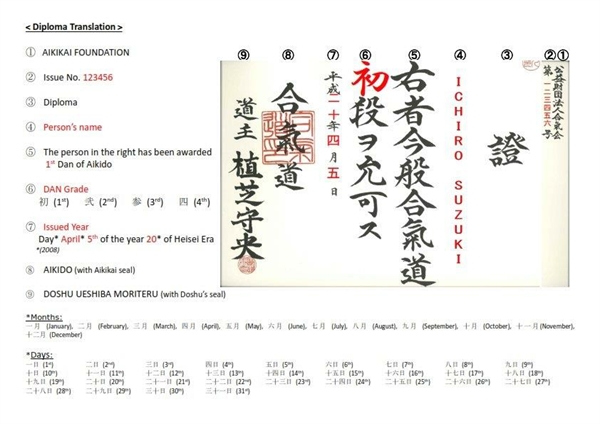 < Diploma Translation >
① AIKIKAI FOUNDATION
② Issue No. 123456
③ Diploma
④ Person's name
⑤ The person in the right has been awarded
1st Dan of Aikido
⑥ DAN Grade
初 (1st) 弐 (2nd) 参 (3rd) 四 (4th)
⑦ Issued Year
Day* April* 5th of the year 20* of Heisei Era
*(2008)
⑧ AIKIDO (with Aikikai seal)
⑨ DOSHU UESHIBA MORITERU (with Doshu's seal)
⑨ ⑧ ⑦ ⑥ ⑤ ④ ③ ②①
公益財団法人合氣会
第一二三四五六号
證
ICHIRO SUZUKI
右者今般合氣道
初段ヲ允可ス
平成二十年四月五日
合氣道
道主 植芝守央
*Months:
一月 (January), 二月 (February), 三月 (March), 四月 (April), 五月 (May), 六月 (June), 七月 (July), 八月 (August), 九月 (September), 十月 (October), 十一月(November),
十二月 (December)
*Days:
一日 (1st) 二日 (2nd) 三日 (3rd) 四日 (4th) 五日 (5th) 六日 (6th) 七日 (7th) 八日 (8th) 九日 (9th)
十日 (10th) 十一日 (11th) 十二日 (12th) 十三日 (13th) 十四日 (14th) 十五日 (15th) 十六日 (16th) 十七日 (17th) 十八日 (18th)
十九日 (19th) 二十日 (20th) 二十一日 (21st) 二十二日 (22nd) 二十三日 (23rd) 二十四日 (24th) 二十五日 (25th) 二十六日 (26th) 二十七日 (27th)
二十八日 (28th) 二十九日 (29th) 三十日 (30th) 三十一日 (31st)